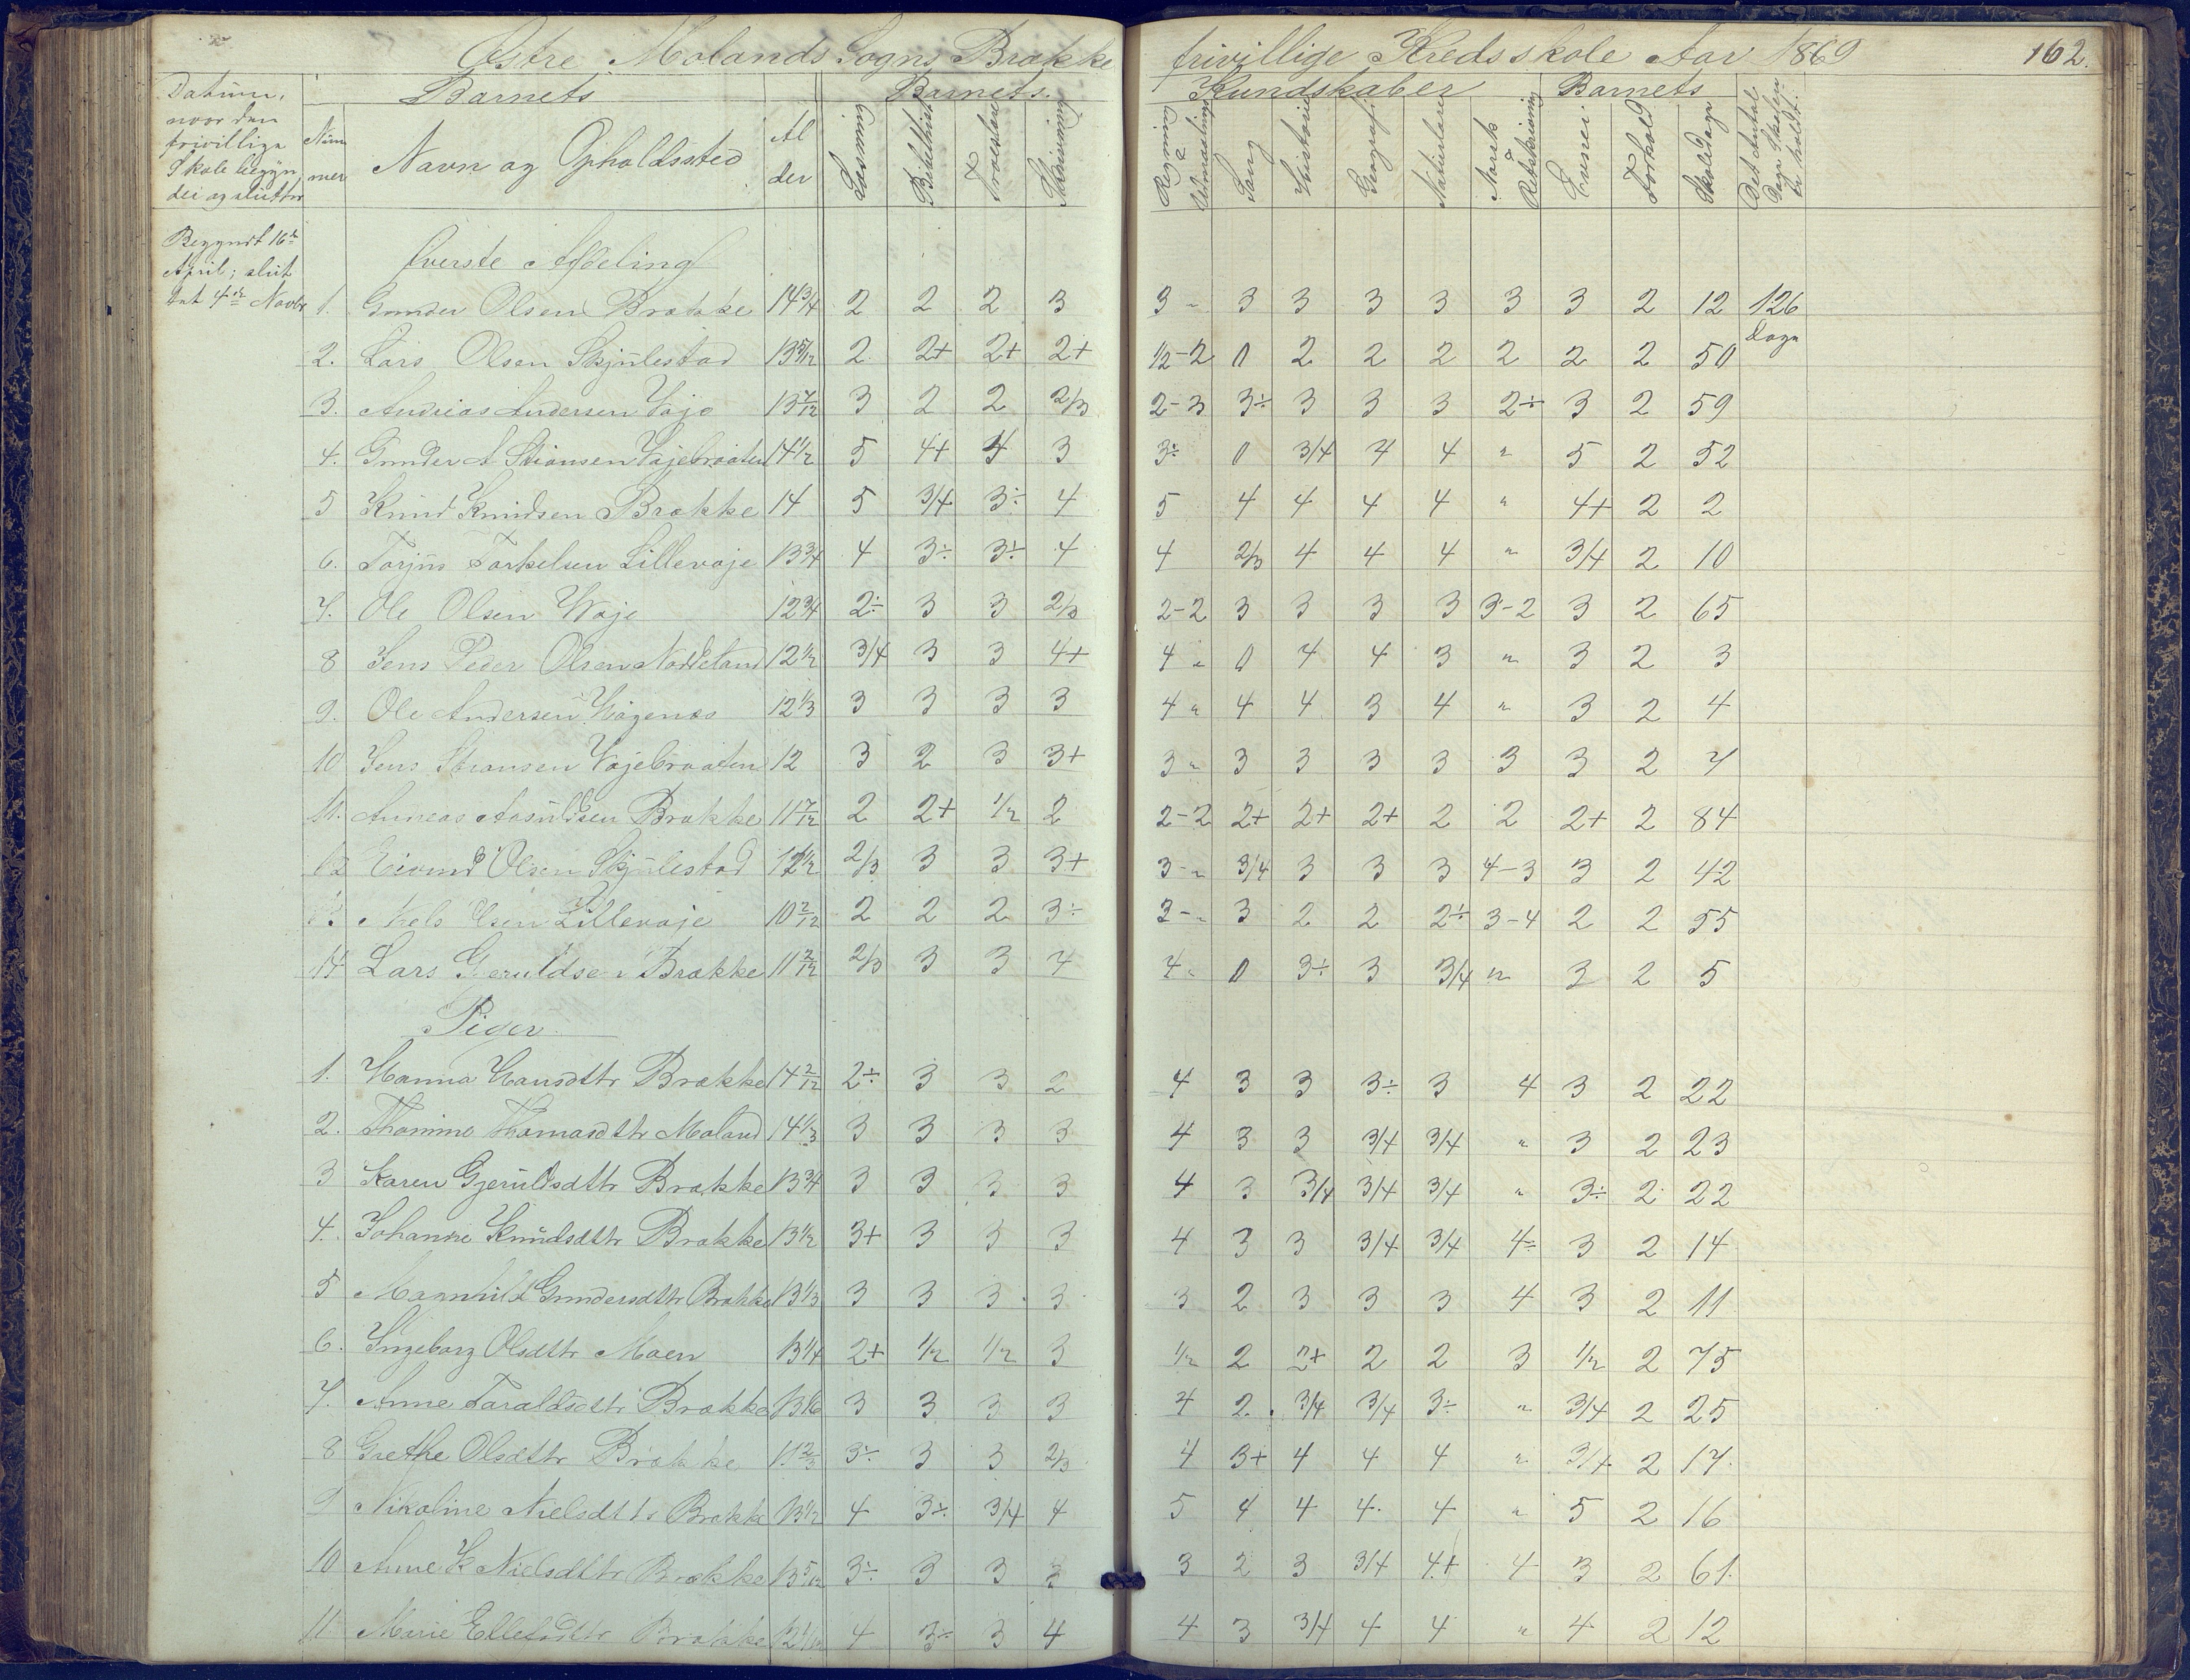 Østre Molands Sogns Brække frivillige Kredsskole Aar 1869 162.
Datum, naar den frivillige Skole begyndte og sluttes
Barnets
Barnets Kundskaber
Barnets
Nummer
Navn og Opholdssted
Alder
Læsning
Bibelhist
Troeslære
Skrivning
Regning &
Sang
Historie
Geografi
Naturlære
Norsk & Retskrivning
Evnei
Forhold
Skoledage
Det Antal Dage Skolen er holdt.
Begyndt 16de April; slut
det 4de Novbr
Øverste Afdeling
1. Gunder Olsen Brække 14 3/4 2 2 2 3 3 " 3 3 3 3 3 3 2 12 126 Dage
2. Lars Olsen Skjulestad 13 5/12 2 2+ 2+ 2+ 1/2-2 0 2 2 2 2 2 2 50
3. Andreas Andersen Vaje 13 7/12 3 2 2 2/3 2-3 3÷ 3 3 3 2÷ 3 2 59
4. Gunder A Stiansen Vajebraaten 14 1/2 5 4+ 4 3 3÷ 0 3/4 4 4 " 5 2 52
5 Knud Knudsen Brække 14 5 3/4 3÷ 4 5 4 4 4 4 " 4+ 2 2
6. Torjus Torkelsen Lillevaje 13 3/4 4 3÷ 3÷ 4 4 2/3 4 4 4 " 3/4 2 10
7. Ole Olsen Waje 12 3/4 2÷ 3 3 2/3 2-2 3 3 3 3 3-2 3 2 65
8 Jens Peder Olsen Nødeland 12 1/2 3/4 3 3 4+ 4 " 0 4 4 3 " 3 2 3
9. Ole Andersen Vågenæs 12 1/3 3 3 3 3 4 " 4 4 3 4 " 3 2 4
10 Jens Stiansen Vajebraaten 12 3 2 3 3+ 3 " 3 3 3 3 3 3 2 7
11. Andreas Aasuldsen Brække 11 7/12 2 2+ 1/2 2 2-2 2+ 2+ 2+ 2 2 2+ 2 84
12 Eivind Olsen Skjulestad 12 1/2 2/3 3 3 3+ 3-" 3/4 3 3 3 4-3 3 2 42
Niels Olsen Lillevaje 10 2/12 2 2 2 3÷ 3-" 3 2 2 2÷ 3-4 2 2 55
14 Lars Gjeruldsen Brække 11 2/12 2/3 3 3 4 4 " 0 3÷ 3 3/4 " 3 2 5
Piger
1. Hanna Hansdttr Brække 14 2/12 2÷ 3 3 2 4 3 3 3÷ 3 4 3 2 22
2. Thomine Thomasdttr Moland 14 1/3 3 3 3 3 4 3 3 3/4 3/4 " 3 2 23
3 Karen Gjeruldsdttr Brække 13 3/4 3 3 3 3 4 3 3/4 3/4 3/4 " 3÷ 2 22
4. Johanne Knudsdttr Brække 13 1/2 3+ 3 3 3 4 3 3 3/4 3/4 4÷ 3 2 14
5 Magnhild Gundersdttr Brække 13 1/3 3 3 3 3 3 2 3 3 3 4 3 2 11
6. Ingeborg Olsdttr Moen 13 1/4 2+ 1/2 1/2 3 1/2 2 2+ 2 2 3 1/2 2 75
7. Anne Taraldsdttr Brække 13 1/6 3 3 3 3 4 2 3/4 3/4 3÷ " 3/4 2 25
8 Grethe Olsdttr Brække 11 2/3 3÷ 3 3 2/3 4 3+ 4 4 4 " 3/4 2 17
9 Nikoline Nielsdttr Brække 13 1/2 4 3÷ 3/4 4 5 4 4 4 4 " 5 2 16
10 Anne K Nielsdttr Brække 13 5/12 3÷ 3 3 3 3 2 3 3/4 4+ 4 3 2 61
11 Marie Ellefsdttr Brække 12 1/12 4 3÷ 3 4 4 3 3/4 4 4 " 4 2 12